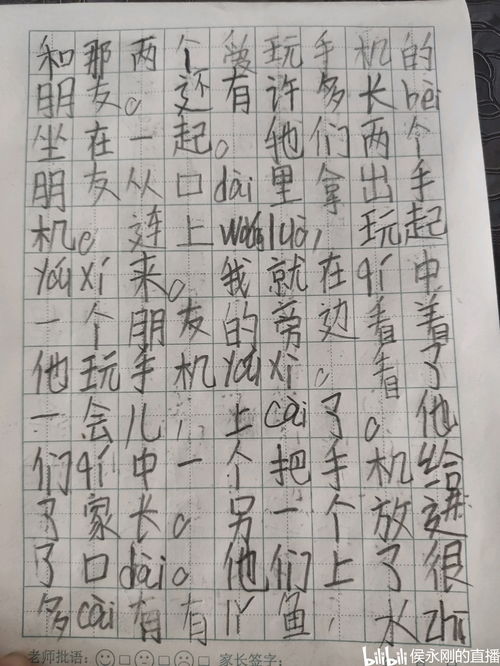 和那两个爱玩手机的
朋友。还有许多长bèi
坐在一起。他们两个
朋友从口dài里拿出手
机。连上wǎngluò,玩起
yóuxí来。我就在qí中
一个朋友的旁边看着
他玩手机yóuxì。看了
一会儿,上cài了。他
们qí中一个把手机给
了家长。另一个放进
了口dài。他们上了很
多cài有有lǐ鱼,水zhǔ
老师批语:
家长签字:
bilibili 侯永刚的直播